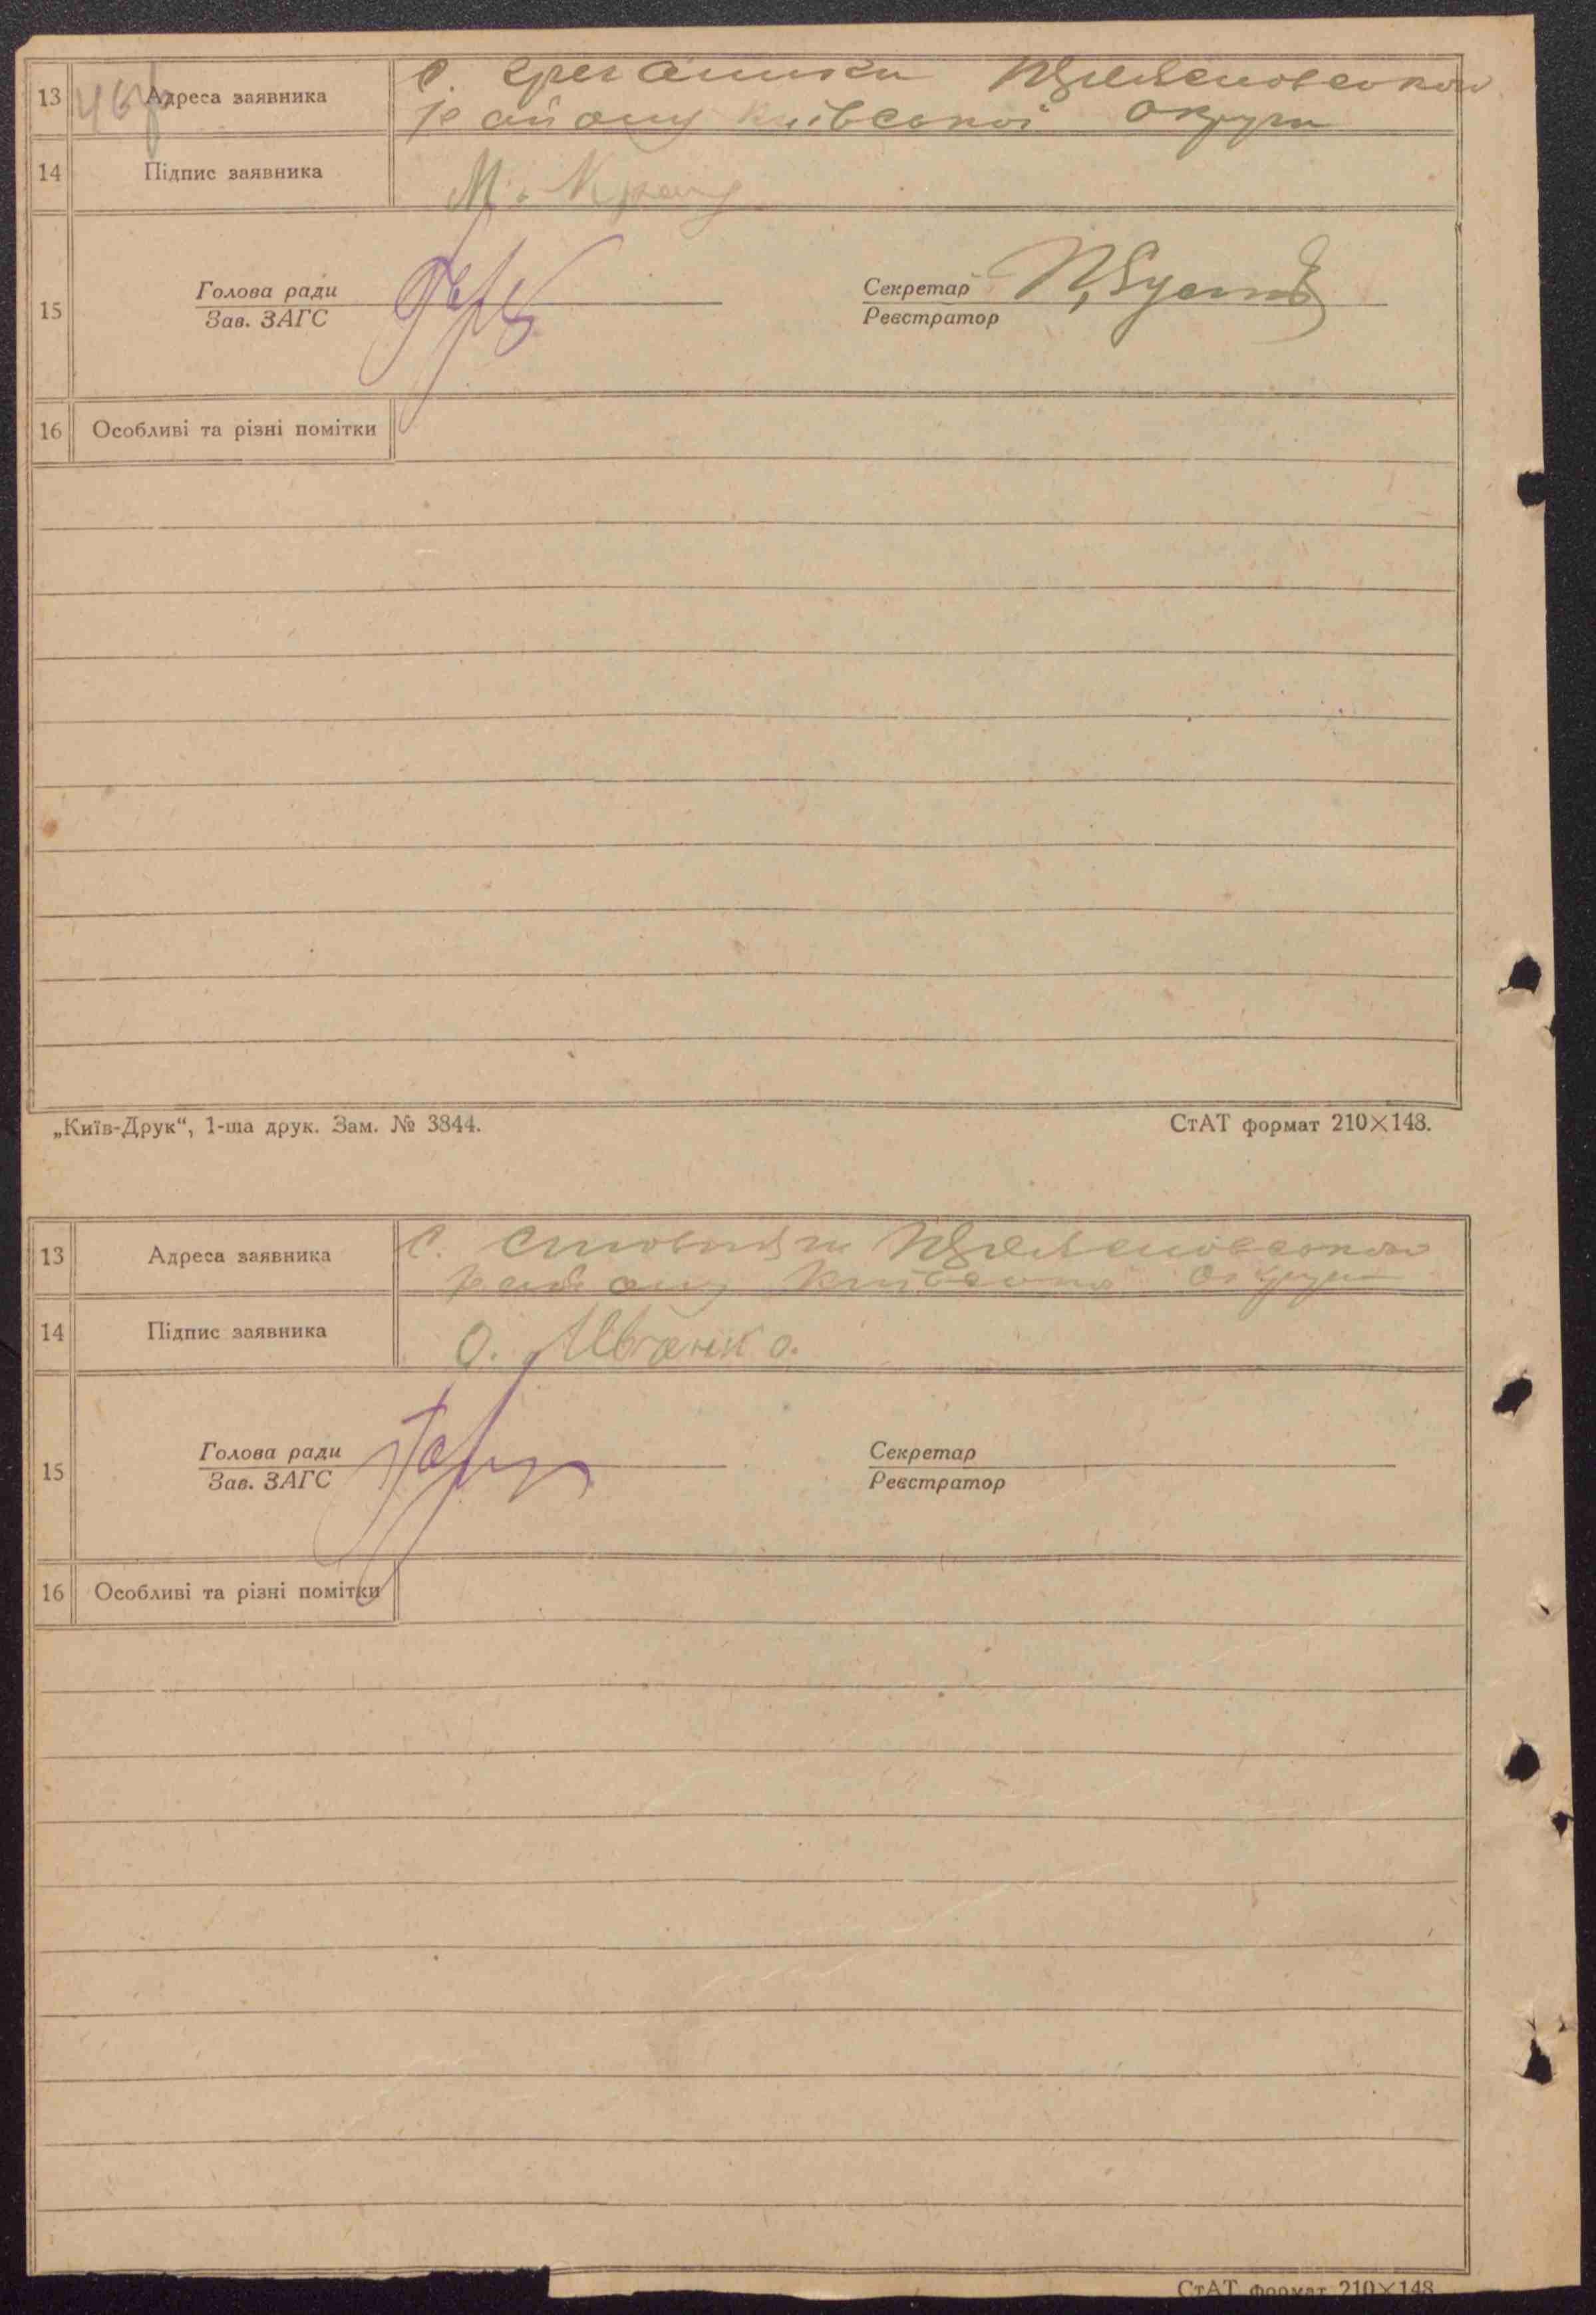 13 Адреса заявника с.
району Київської округи
14 Підпис заявника М.
15 Голова ради Секретар
Зав. ЗАГС Реєстратор
16 Особливі та різні помітки
„Київ-Друк“, 1-ша друк. Зам. № 3844. СтАТ формат 210×148.
13 Адреса заявника с.
району Київської Округи
14 Підпис заявника О. Іванко.
15 Голова ради Секретар
Зав. ЗАГС Реєстратор
16 Особливі та різні помітки
СтАТ формат 210×148